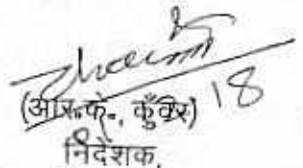 18
(आर.के., कुँवर)
निदेशक,